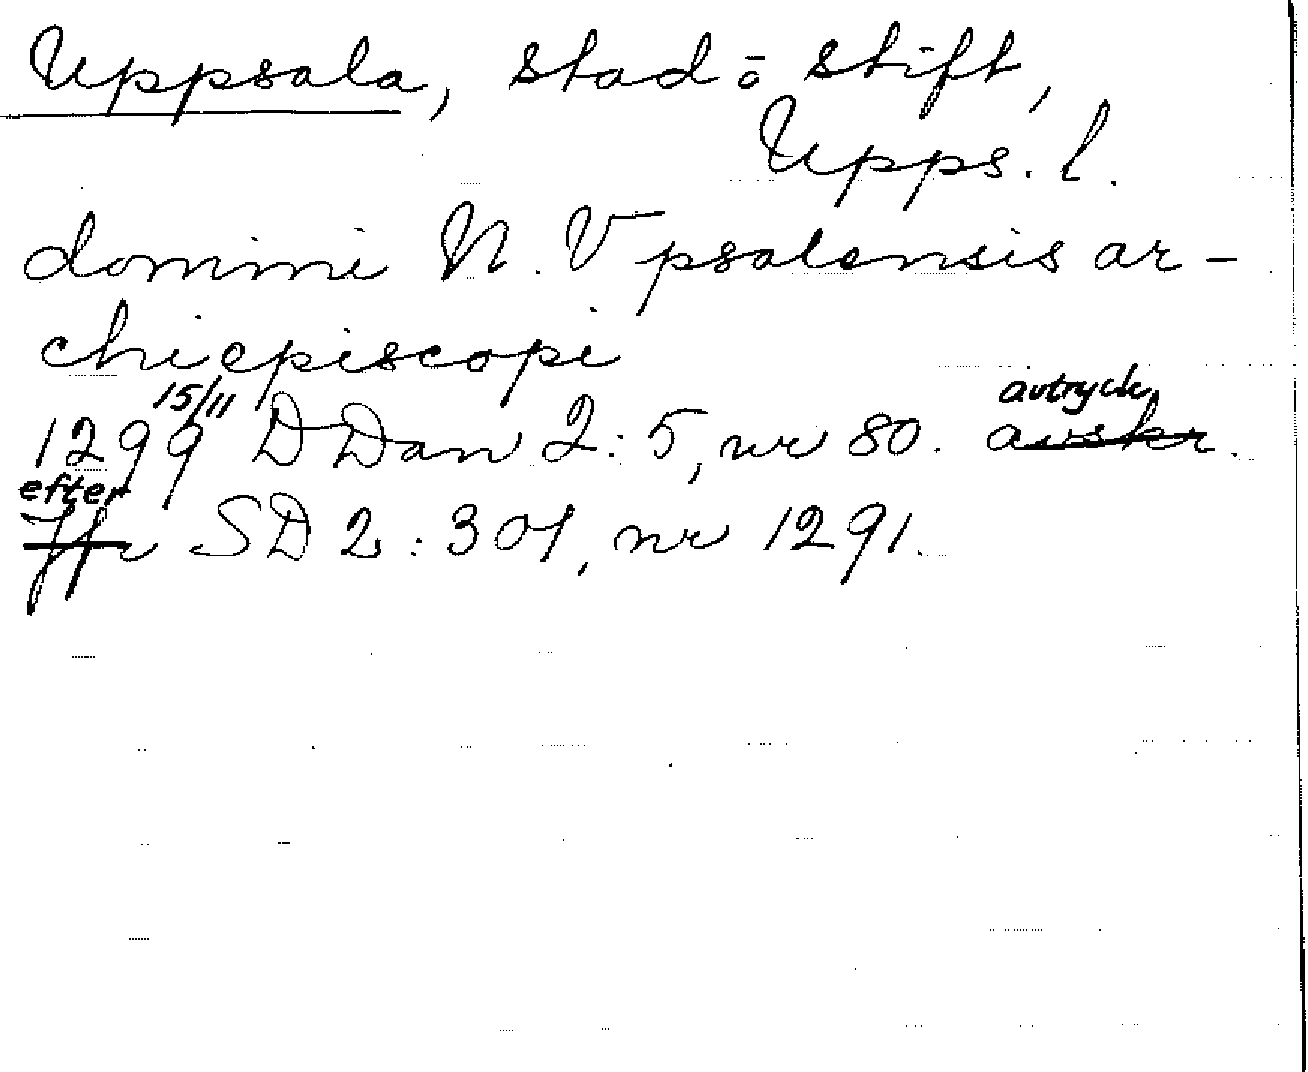 Uppsala, stad ō stift,
Upps. l.
domini N. Vpsalensis ar-
chiepiscopi
15/11 avtryck
1299 DDan 2:5, nr 80. avskr.
efter
Jfr SD 2:301, nr 1291.